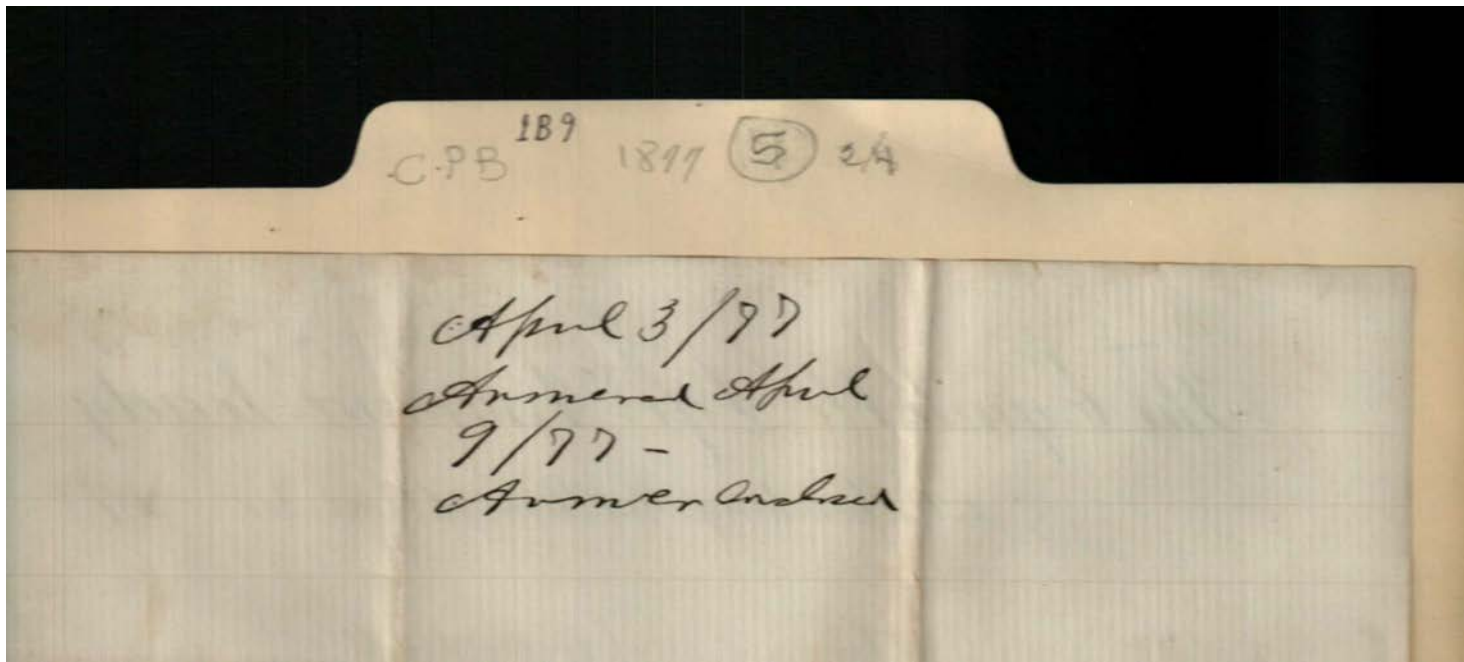 1B9
C-PB 1877 5 2/4
April 3/77
Answered April
9/77 -
Answer Enclosed